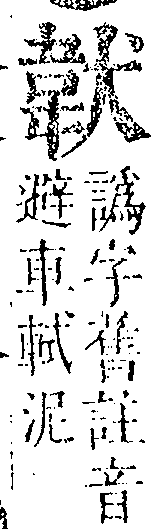 譌字舊註音
避車軾泥